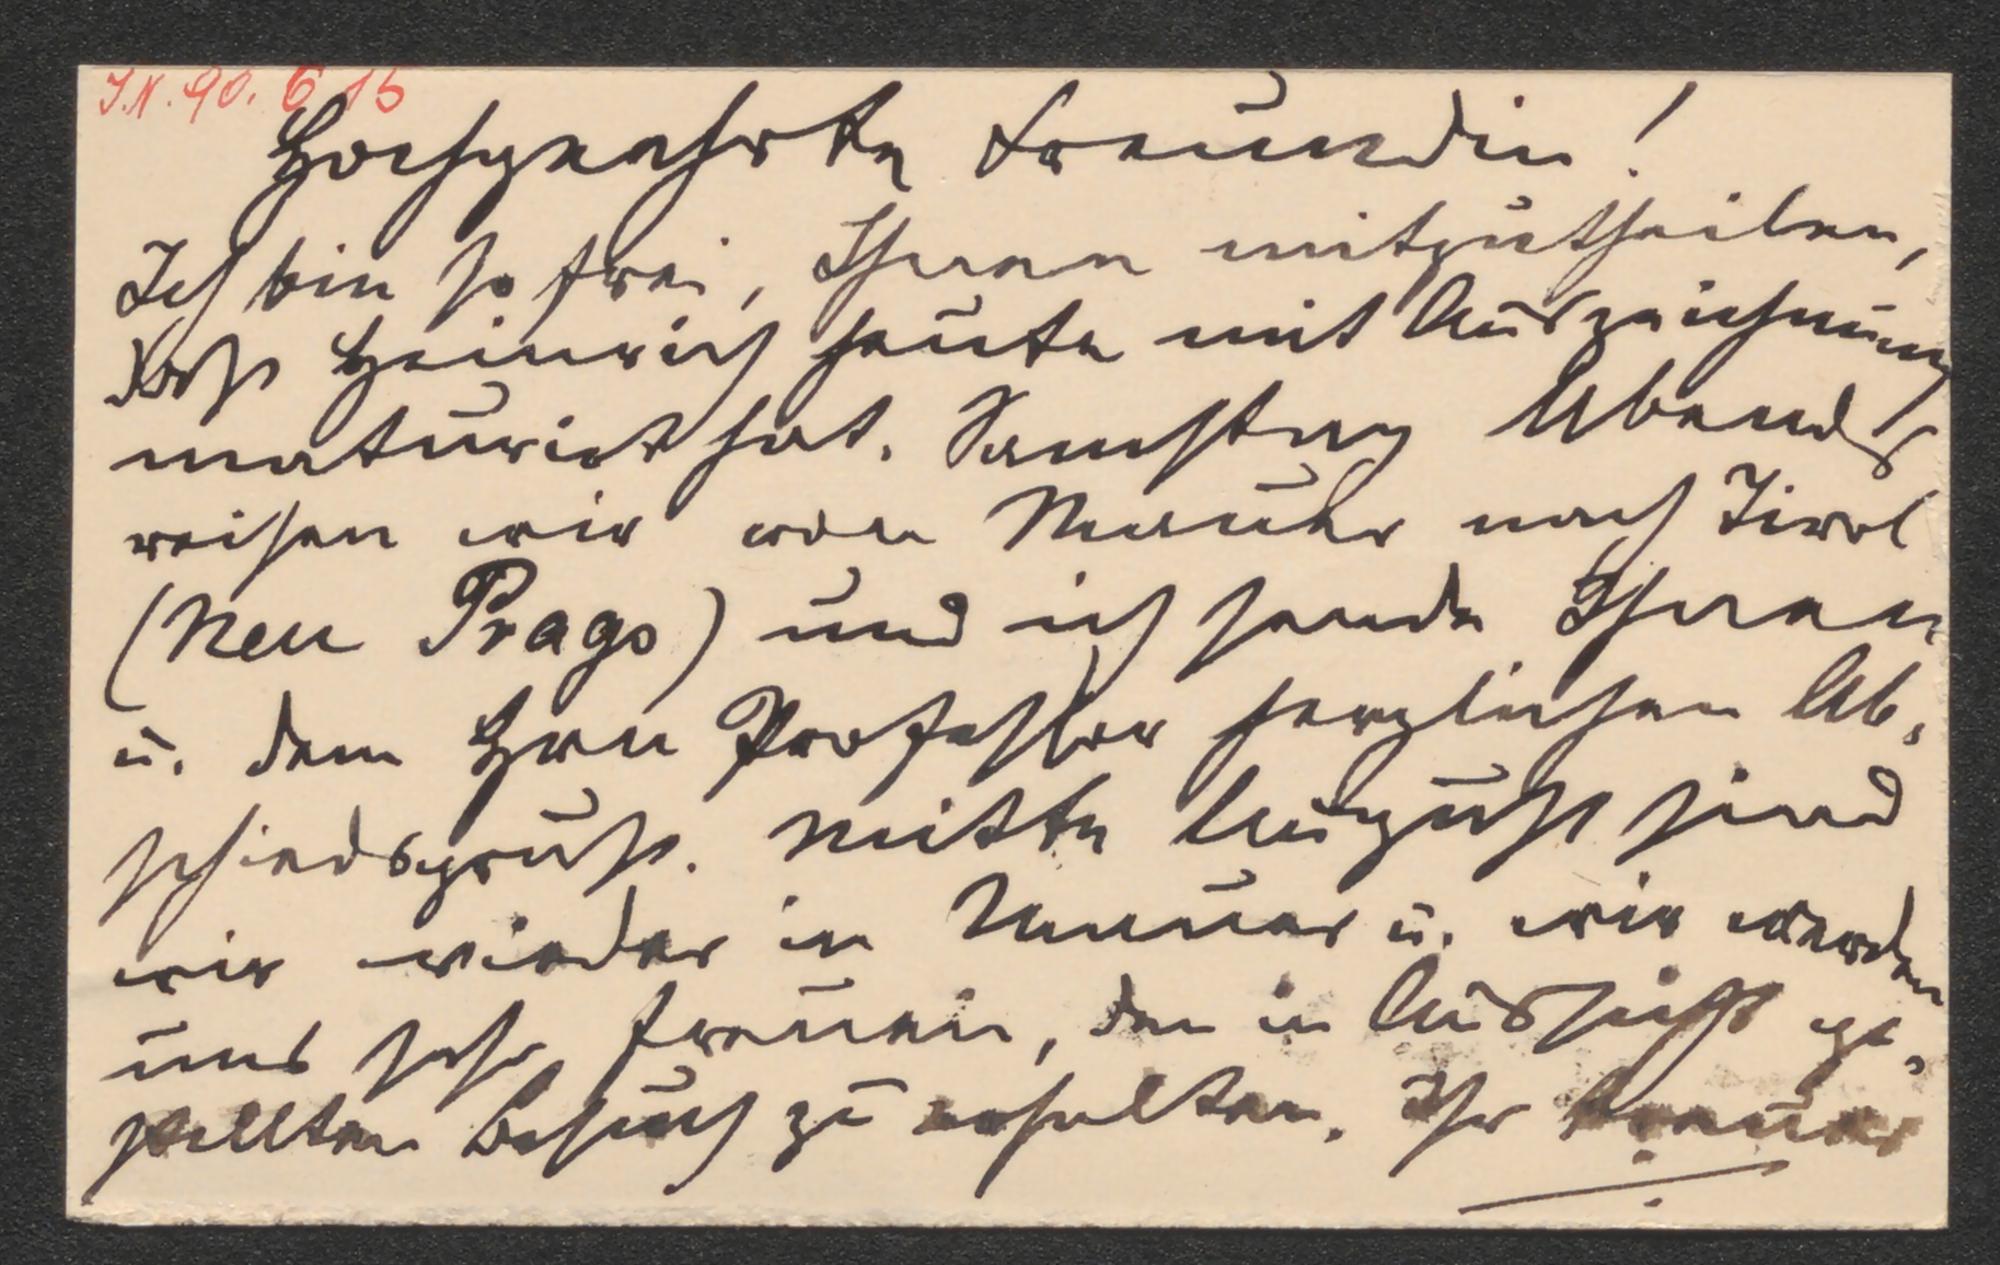 I.N. 90.615
Hochgeehrte Freundin!
Ich bin so frei, Ihnen mitzutheilen,
dass Heinrich heute mit Auszeichnung
maturirt hat. Samstag Abends
reisen wir von Mauer nach Tirol
(Neu Prags) und ich sende Ihnen
u. dem Hrn Professor herzlichen Ab-
schiedsgruß. Mitte August sind
wir wieder in Mauer u. wir werden
uns sehr freuen, den in Aussicht ge-
stellten Besuch zu erhalten. Ihr treuer